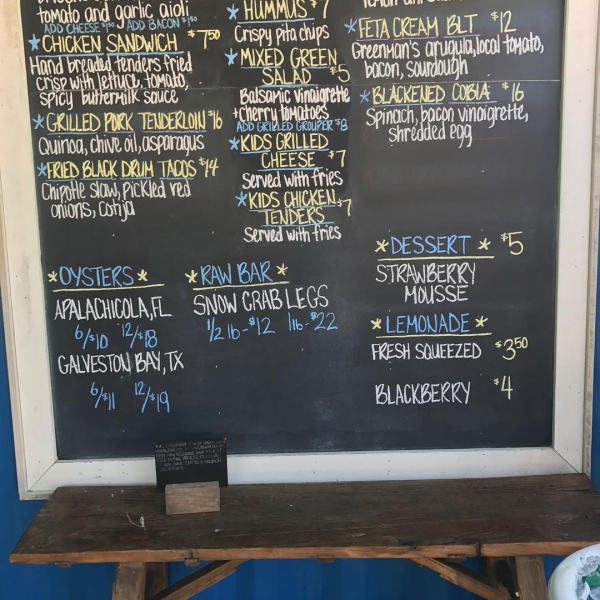 tomato and garlic aioli
ADD CHEESE $1.50 ADD BACON $1.50
*CHICKEN SANDWICH $7.50
Hand breaded tenders fried
crisp with lettuce, tomato,
spicy buttermilk sauce
*GRILLED PORK TENDERLOIN $16
Quinoa, chive oil, asparagus
*FRIED BLACK DRUM TACOS $14
Chipotle slaw, pickled red
onions, cotija
*HUMMUS $7
Crispy pita chips
*MIXED GREEN
SALAD $5
Balsamic vinaigrette
+cherry tomatoes
ADD GRILLED GROUPER $8
*KIDS GRILLED
CHEESE $7
Served with fries
*KIDS CHICKEN
TENDERS $7
Served with fries
*FETA CREAM BLT $12
Greenman's arugula, local tomato,
bacon, sourdough
*BLACKENED COBIA $16
Spinach, bacon vinaigrette,
shredded egg
*OYSTERS*
APALACHICOLA, FL
6/$10 12/$18
GALVESTON BAY, TX
6/$11 12/$19
*RAW BAR*
SNOW CRAB LEGS
1/2 lb-$12 1lb-$22
*DESSERT* $5
STRAWBERRY
MOUSSE
*LEMONADE*
FRESH SQUEEZED $3.50
BLACKBERRY $4